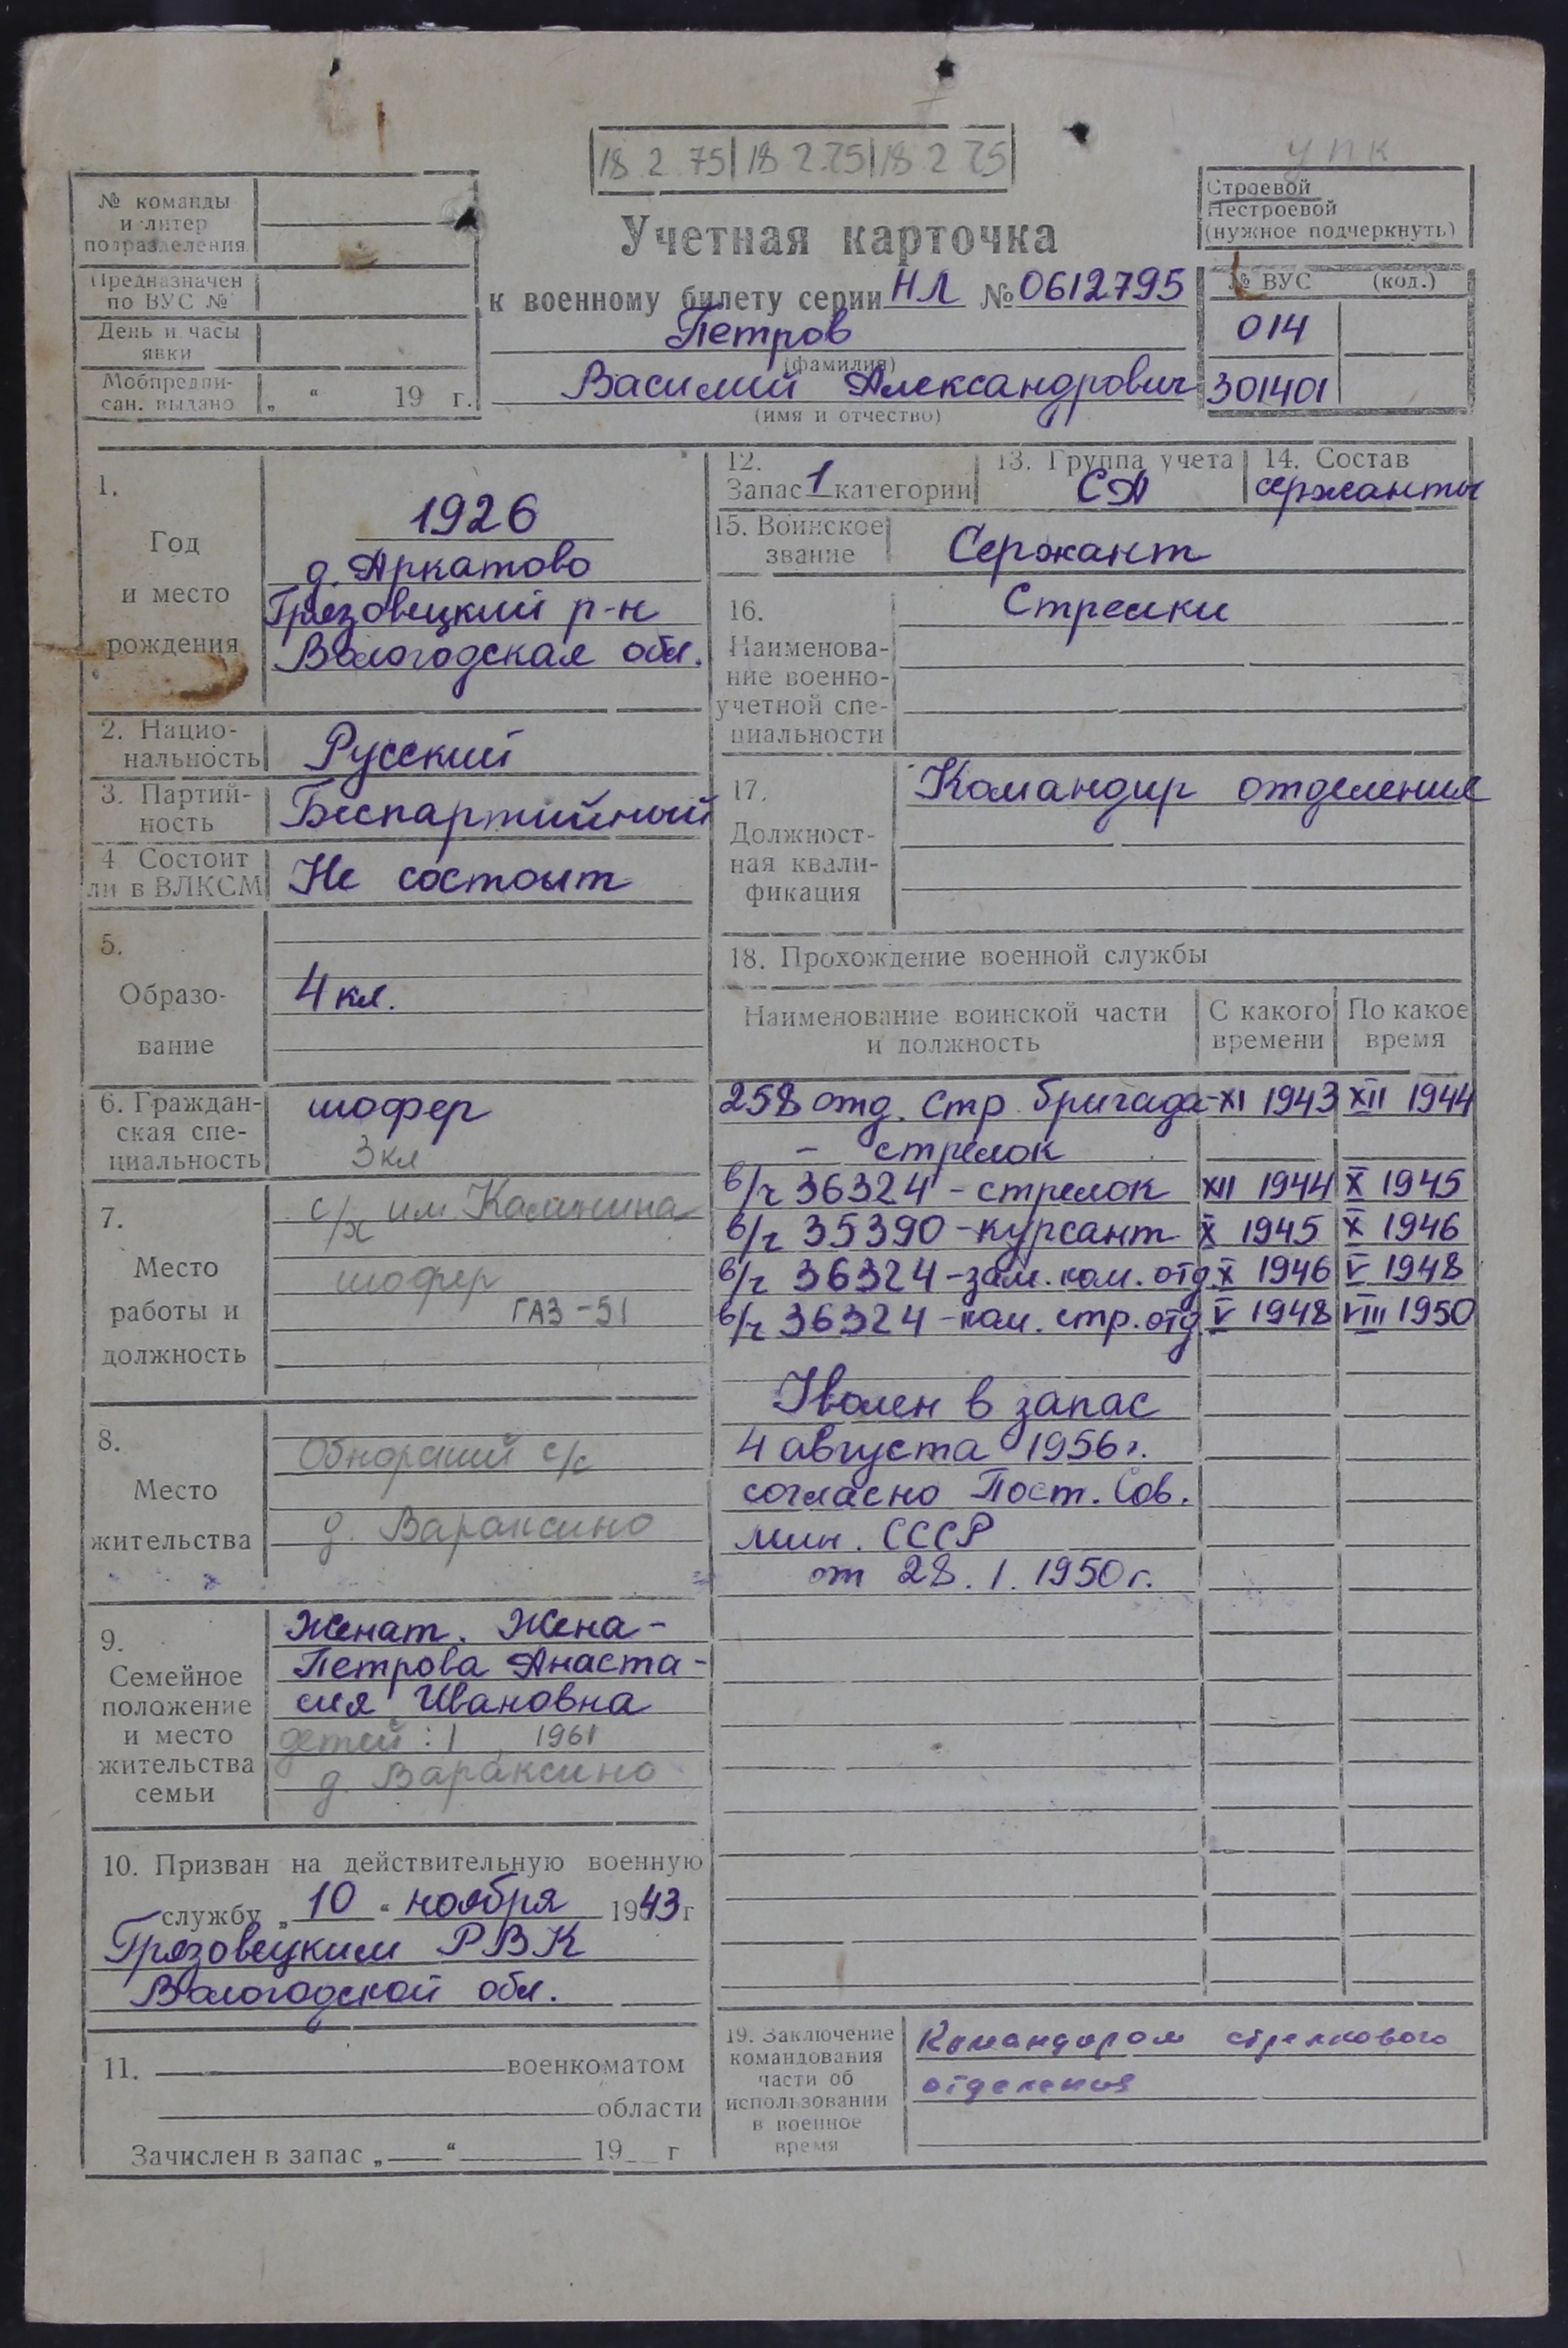 18 2 75 18 2.75 18 2 75
УПК
№ команды
и литер
подразделения
Предназначен
по ВУС №
День и часы
явки
Мобпредпи-
сан. выдано „ “ 19 г.
Учетная карточка
к военному билету серии НЛ № 0612795
Петров
(фамилия)
Василий Александрович
(имя и отчество)
Строевой
Нестроевой
(нужное подчеркнуть)
№ ВУС (код.)
014
301401
1.
Год
и место
рождения
1926
д. Аркатово
Грязовецкий р-н
Вологодская обл.
2. Нацио-
нальность
Русский
3. Партий-
ность
Беспартийный
4 Состоит
ли в ВЛКСМ
Не состоит
5.
Образо-
вание
4 кл.
6. Граждан-
ская спе-
циальность
шофер
3 кл
7.
Место
работы и
должность
с/х им. Калинина
шофер
ГАЗ-51
8.
Место
жительства
Обнорский с/с
д. Вараксино
9.
Семейное
положение
и место
жительства
семьи
Женат. Жена -
Петрова Анаста-
сия Ивановна
детей : 1 1961
д. Вараксино
10. Призван на действительную военную
службу „ 10 “ ноября 1943 г
Грязовецким РВК
Вологодской обл.
11. военкоматом
области
Зачислен в запас „ “ 19 г
12.
Запас 1 категории
13. Группа учета
СА
14. Состав
сержанты
15. Воинское
звание
Сержант
16.
Наименова-
ние военно-
учетной спе-
циальности
Стрелки
17.
Должност-
ная квали-
фикация
Командир отделения
18. Прохождение военной службы
Наименование воинской части
и должность
С какого
времени
По какое
время
258 отд. стр. бригада - XI 1943 XII 1944
- стрелок
в/ч 36324 - стрелок XII 1944 X 1945
в/ч 35390 - курсант X 1945 X 1946
в/ч 36324 - зам. ком. отд X 1946 V 1948
в/ч 36324 - ком. стр. отд. V 1948 VIII 1950
Уволен в запас
4 августа 1956 г.
согласно Пост. Сов.
мин. СССР
от 28. 1. 1950 г.
19. Заключение
командования
части об
использовании
в военное
время
Командиром стрелкового
отделения